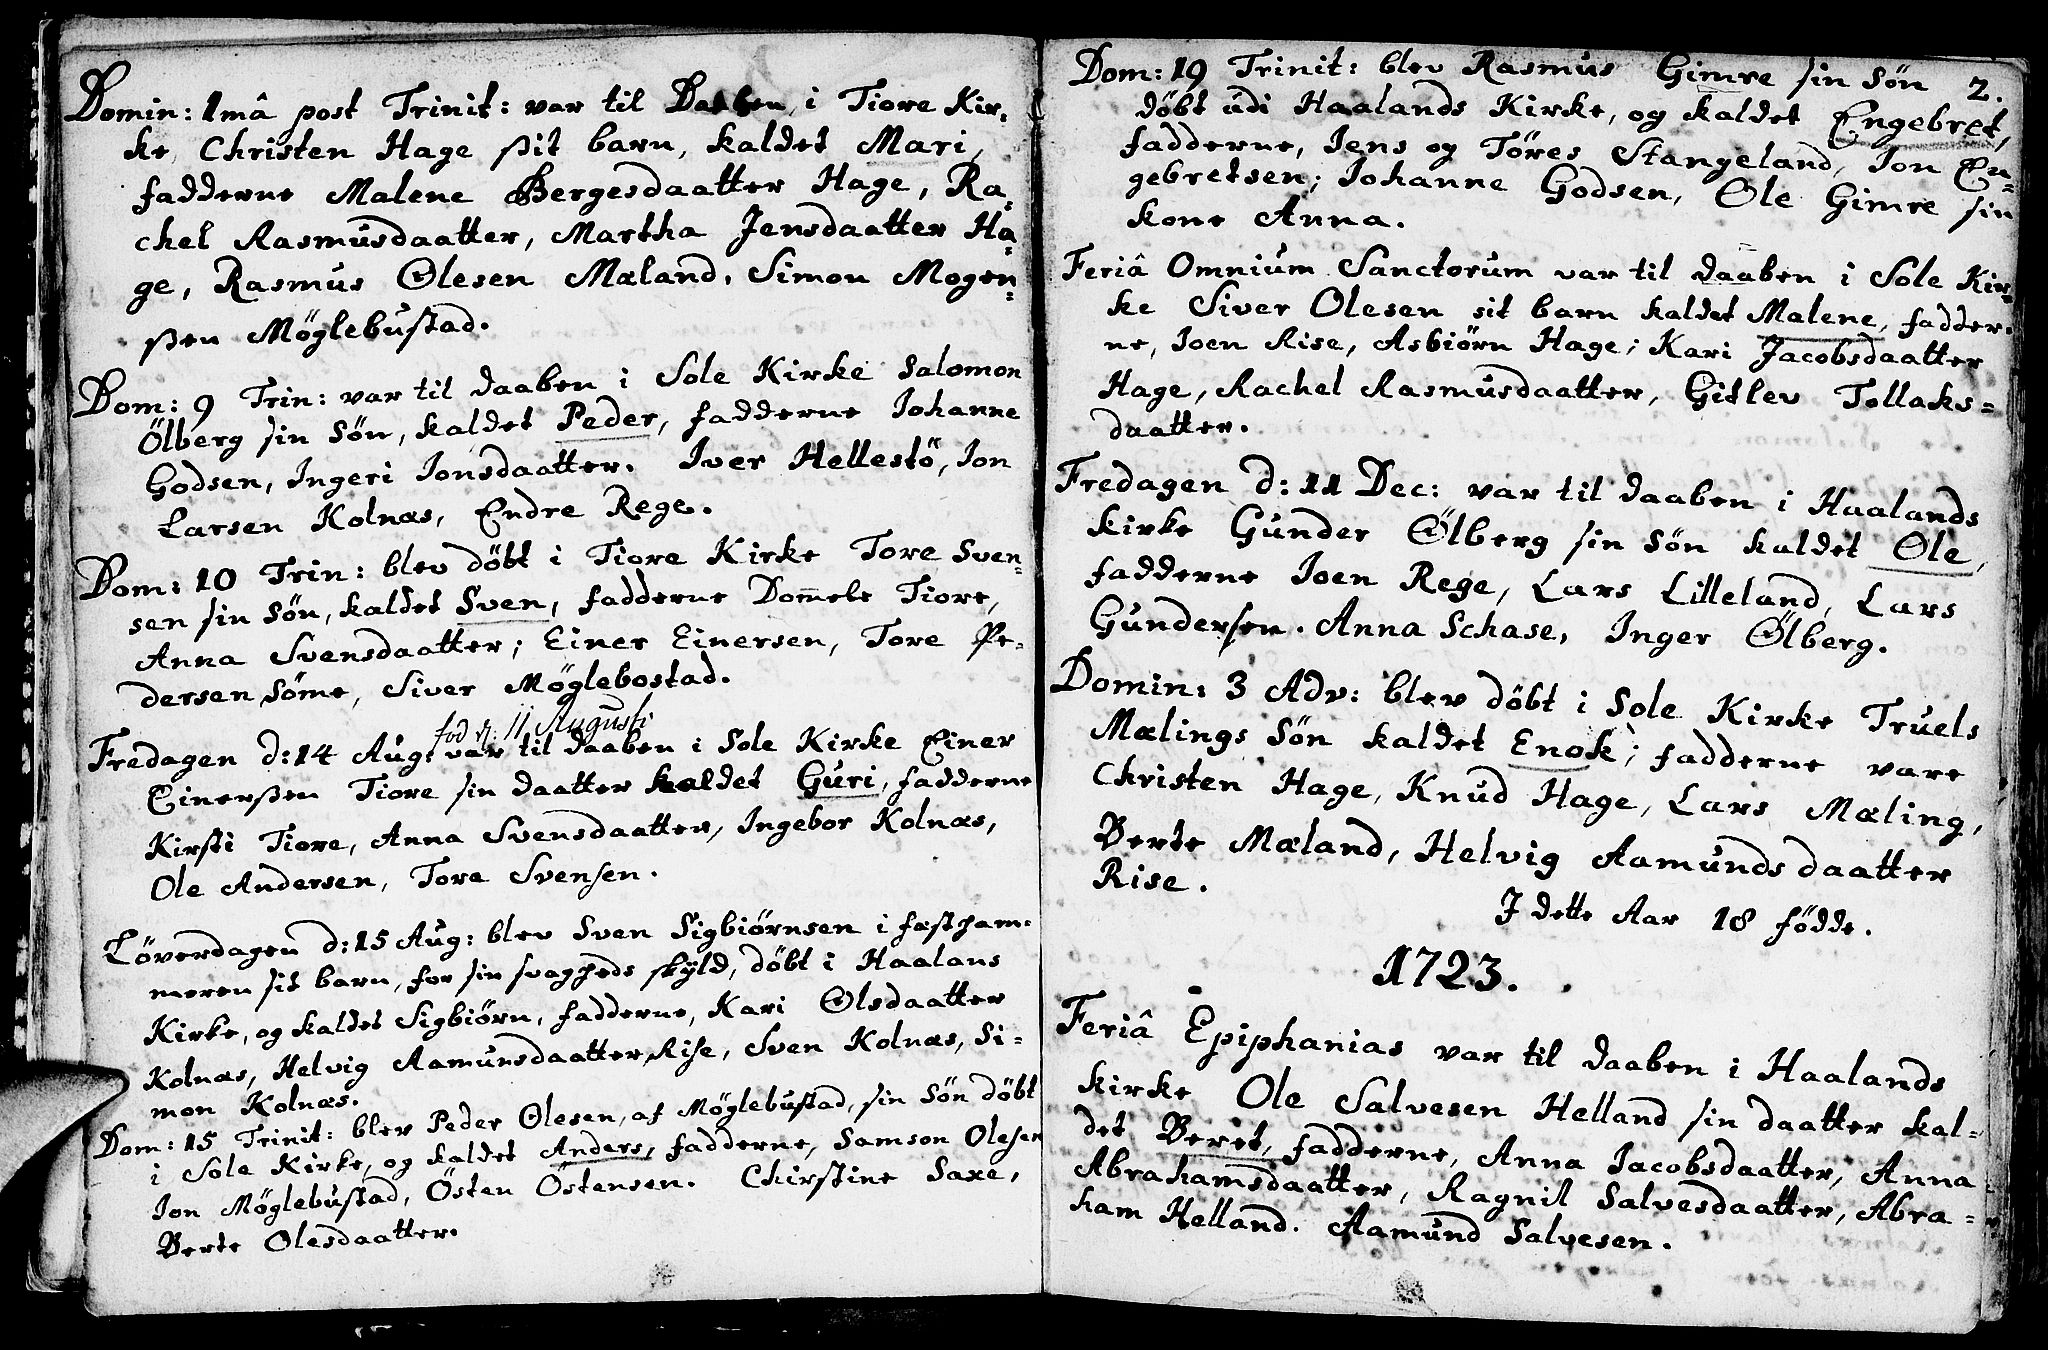 Domin: 1mâ post Trinit: var til Daaben i Tiore Kir-
ke, Christen Hage ßit barn, kaldet Mari,
fadderne Malene Bergesdaatter Hage, Ra-
chel Rasmusdaatter, Martha Jensdaatter Ha-
ge, Rasmus Olesen Mæland, Simon Mogen-
ßen Möglebustad.
Dom: 9 Trin: var til daaben i Sole Kirke Salomon
Ölberg sin Sön, kaldet Peder, fadderne Johanne
Godsen, Ingeri Jonsdaatter. Iver Hellestö, Jon
Larsen Kolnæs, Endre Rege.
Dom: 10 Trin: blev döbt i Tiore Kirke Tore Sven-
sen sin Sön, kaldet Sven, fadderne Dom̅ele Tiore,
Anna Svensdaatter; Einer Einersen, Tore Pe-
dersen Söme, Siver Möglebostad.
fød d: 11 Augusti
Fredagen d: 14 Aug: var til daaben i Sole Kirke Einer
Einerßen Tiore sin daatter kaldet Guri, fadderne
Kirsti Tiore, Anna Svensdaatter, Ingebor Kolnæs,
Ole Andersen, Tore Svensen.
Löverdagen d: 15 Aug: blev Sven Sigbiörnsen i fæstham-
meren sit barn, for sin svagheds skyld, döbt i Haalans
Kirke, og kaldet Sigbiörn, fadderne, Kari Olsdaatter
Kolnæs, Helvig Aamunsdaatter Rise, Sven Kolnæs, Si-
mon Kolnæs.
Dom: 15 Trinit: blev Peder Olesen, af Möglebustad, sin Sön döbt
i Sole Kirke, og kaldet Anders, fadderne, Samson Olesen
Jon Möglebustad, Östen Östensen. Chirstine Saxe,
Berte Olesdaatter.
2.
Dom: 19 Trinit: blev Rasmus Gimre sin Sön
döbt udi Haalands Kirke, og kaldet Engebret,
fadderne, Jens og Töres Stangeland, Jon En-
gebretsen; Johanne Godsen, Ole Gimre sin
kone Anna.
Feriâ Omnium Sanctorum var til daaben i Sole Kir-
ke Siver Olesen sit barn kaldet Malene, fadder-
ne, Joen Rise, Asbiörn Hage; Kari Jacobsdaatter
Hage, Rachel Rasmusdaatter, Gitlev Tollaks-
daatter.
Fredagen d: 11 Dec: var til daaben i Haalands
kirke Gunder Ölberg sin sön kaldet Ole,
fadderne Joen Rege, Lars Lilleland, Lars
Gundersen. Anna Schase, Inger Ölberg.
Domin: 3 Adv: blev döbt i Sole Kirke Truels
Mælings Sön kaldet Enok; fadderne vare
Christen Hage, Knud Hage, Lars Mæling,
Berte Mæland, Helvig Aamundsdaatter
Rise.
I dette Aar 18 födde.
1723.
Feriâ Epiphanias var til daaben i Haalands
kirke Ole Salvesen Helland sin daatter kal-
det Beret, fadderne, Anna Jacobsdaatter, Anna
Abrahamsdaatter, Ragnil Salvesdaatter, Abra-
ham Helland. Aamund Salvesen.